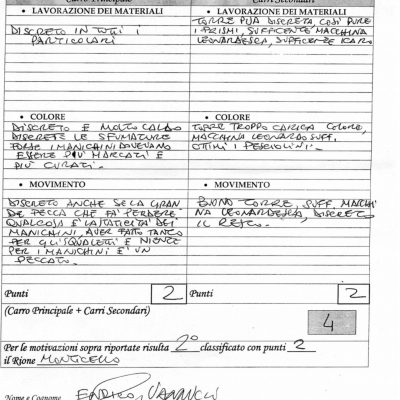 Carro Principale
Carri Secondari
• LAVORAZIONE DEI MATERIALI
DISCRETO IN TUTTI I
PARTICOLARI
• LAVORAZIONE DEI MATERIALI
TORRE PUA DISCRETA, COSÌ PURE
I PRISMI, SUFFICENTE MACCHINA
LEONARDESCA, SUFFICENTE ICARO
• COLORE
DISCRETO E MOLTO CALDO
DISCRETE LE SFUMATURE
FORSE I MANICHINI DOVEVANO
ESSERE PIU' MARCATI E
PIÙ CURATI.
• COLORE
TORRE TROPPO CARICA COLORE,
MACCHINA LEONARDO SUFF.
OTTIMI I PESCIOLINI.
• MOVIMENTO
DISCRETO ANCHE SE LA GRAN
DE PECCA CHE FA' PERDERE
QUALCOSA E' LA STATICITA' DEI
MANICHINI, AVER FATTO TANTO
PER GLI SQUALETTI E NIENTE
PER I MANICHINI E' UN
PECCATO.
• MOVIMENTO
BUONO TORRE, SUFF. MACCHI
NA LEONARDESCA, DISCRETO
IL RESTO.
Punti 2
Punti 2
(Carro Principale + Carri Secondari) 4
Per le motivazioni sopra riportate risulta 2° classificato con punti 2
il Rione MONTICELLO
Nome e Cognome ENRICO VANNUCCI